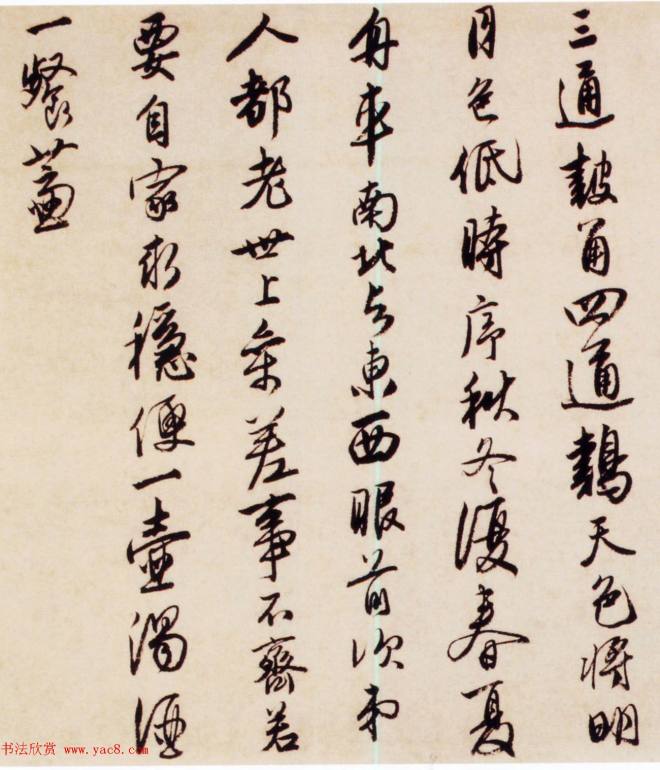 三通鼓角四通鷄天色將明
月色低時序秋冬復春夏
舟車南北與東西眼前次第
人都老世上參差事不齊若
要自家求穩便一壺濁酒
一餐虀
书法欣赏 www.yac8.com